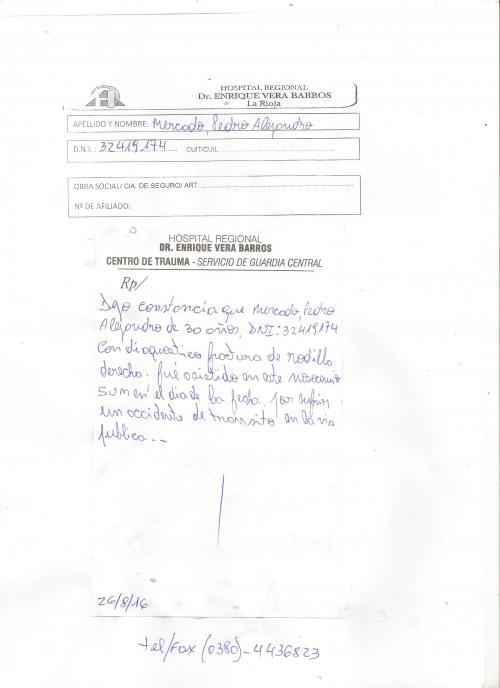 HOSPITAL REGIONAL
Dr. ENRIQUE VERA BARROS
La Rioja
APELLIDO Y NOMBRE: Mercado, Pedro Alejandro
D.N.I.: 32419174 CUIT/CUIL:
OBRA SOCIAL/ CIA. DE SEGURO/ ART:
Nº DE AFILIADO:
HOSPITAL REGIONAL
DR. ENRIQUE VERA BARROS
CENTRO DE TRAUMA - SERVICIO DE GUARDIA CENTRAL
Rp/
Dejo constancia que Mercado Pedro
Alejandro de 30 años, DNI: 32419174
Con diagnostico fractura de rodilla
derecha. fué asistido en este nosocomio
en el día de la fecha. por sufrir
un accidente de transito en la via
publica.--
26/8/16
tel/Fax (0380)-4436823